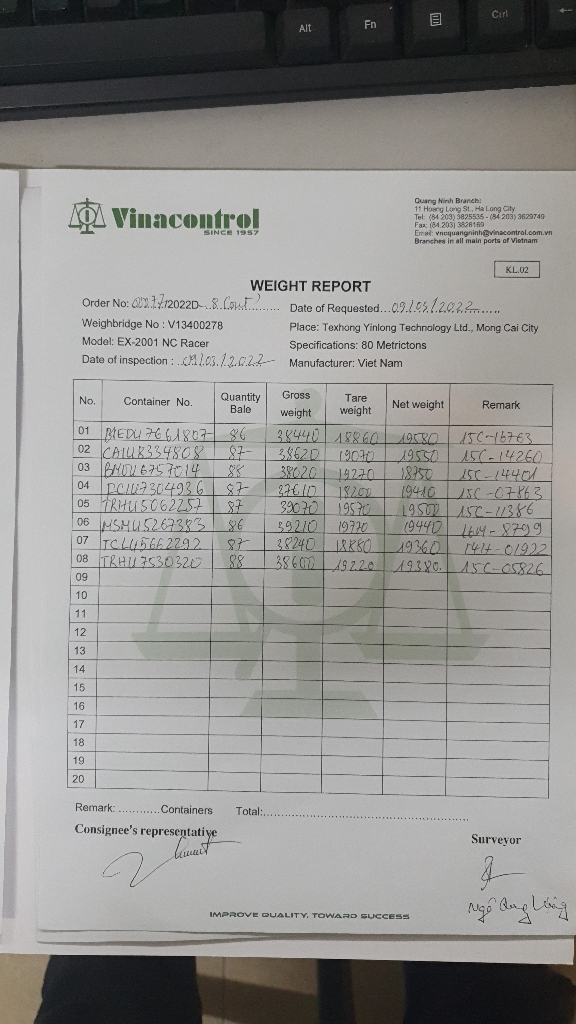 Alt
Fn
Ctrl
Vinacontrol
SINCE 1957
Quang Ninh Branch:
11 Hoang Long St., Ha Long City
Tel: (84.203) 3825535 - (84.203) 3629749
Fax: (84.203) 3826169
Email: vncquangninh@vinacontrol.com.vn
Branches in all main ports of Vietnam
KL.02
WEIGHT REPORT
Order No: /2022D- 8 Cont
Date of Requested...09/03/2022......
Weighbridge No : V13400278
Place: Texhong Yinlong Technology Ltd., Mong Cai City
Model: EX-2001 NC Racer
Specifications: 80 Metrictons
Date of inspection : 09/03/2022
Manufacturer: Viet Nam
No. Container No. Quantity Bale Gross weight Tare weight Net weight Remark
01 MEDU7661807 86 38440 18860 19580 15C-16763
02 CAIU8334808 87 38620 19070 19550 15C-14260
03 6757014 88 38020 19270 18750 15C-14401
04 7304936 87 37610 18200 19410 15C-07863
05 TRHU5062257 87 39070 19570 19500 15C-11386
06 MSMU5267383 86 39210 19770 19440 8799
07 TCLU5662292 87 38240 18880 19360 14H-01922
08 TRHU7530320 88 38600 19220 19380. 15C-05826
09
10
11
12
13
14
15
16
17
18
19
20
Remark: ............Containers Total:..........................................................
Consignee's representative
Surveyor
Ngô Quang
IMPROVE QUALITY, TOWARD SUCCESS